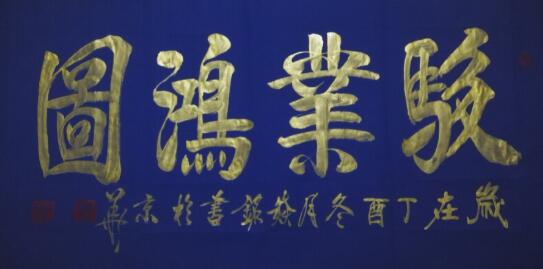 駿業鴻圖
歲在丁酉冬月發銀書於京華